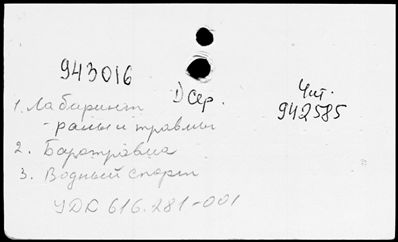 943016
Dсер.
Чит.
942585
1. Лабаринт
- раны и травмы
2. Баротравма
3. Водный спорт
УДК 616.281-001